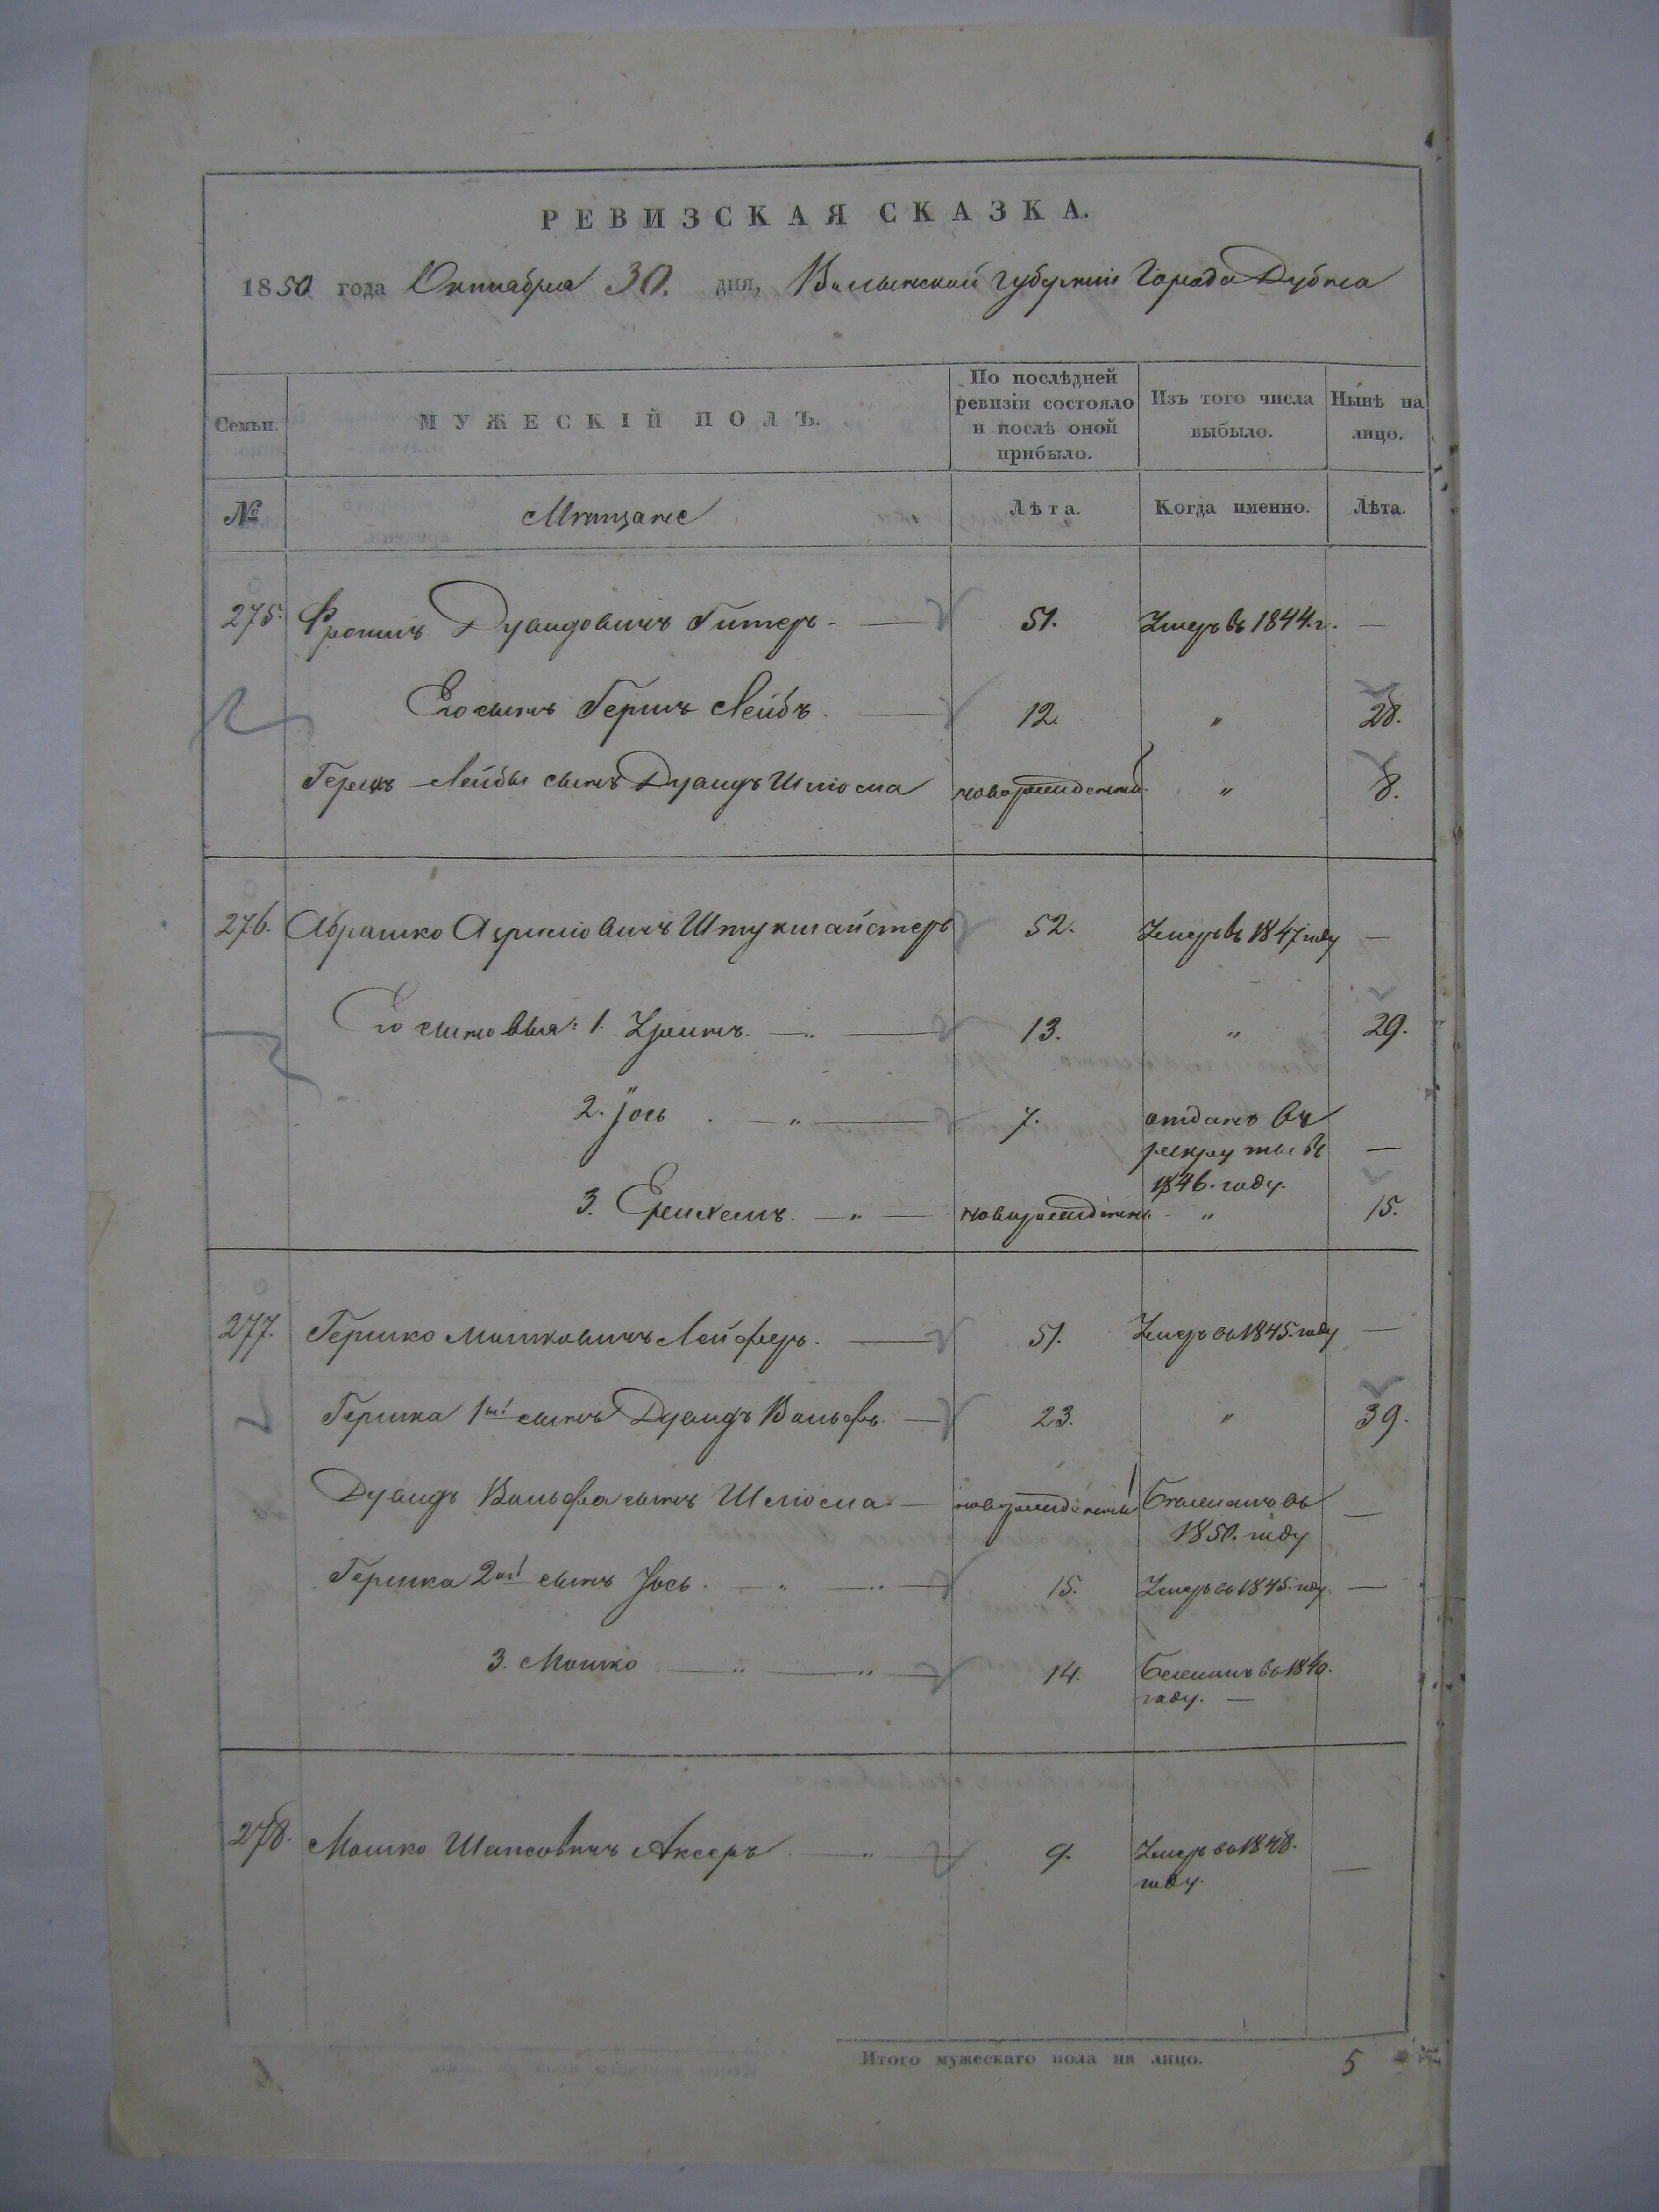 РЕВИЗСКАЯ СКАЗКА.
1850 года Октября 30. дня, Волынской губернии Города Дубна
Семьи. МУЖЕСКІЙ ПОЛЪ. По послѣдней ревизіи состояло и послѣ оной прибыло. Изъ того числа выбыло. Нынѣ на лицо.
№ Мѣщане Лѣта. Когда именно. Лѣта.
275. Дувидовичъ 51. Умеръ въ 1844. г. —
Его сынъ Гершъ Лейбъ. 12. " 28.
Гершъ Лейбы сынъ Дувидъ Шлюома новорожденный " 8.
276. Абрашко Штукмайстеръ 52. Умеръ въ 1847 году —
Его сыновья: 1. — " — 13. " 29.
2. Іось . — " — 7. отданъ въ
рекруты въ —
1846. году.
3. — " — новорожденны " 15.
277. Гершко Мошковичъ Лейферъ. 51. Умеръ въ 1845. году —
Гершка 1ый сынъ Дувидъ Вольфъ. — 23. " 39.
Дувидъ Вольфа сынъ Шлюома — новорожденный въ —
1850. году
Гершка 2ой сынъ Іось. — " — " — 15. Умеръ въ 1845. году —
3. Мошко — " — " — 14. въ 1840.
году. —
278. Мошко Шапсовичъ Аксеръ — " — 9. Умеръ въ 1848.
году. —
Итого мужескаго пола на лицо. 5